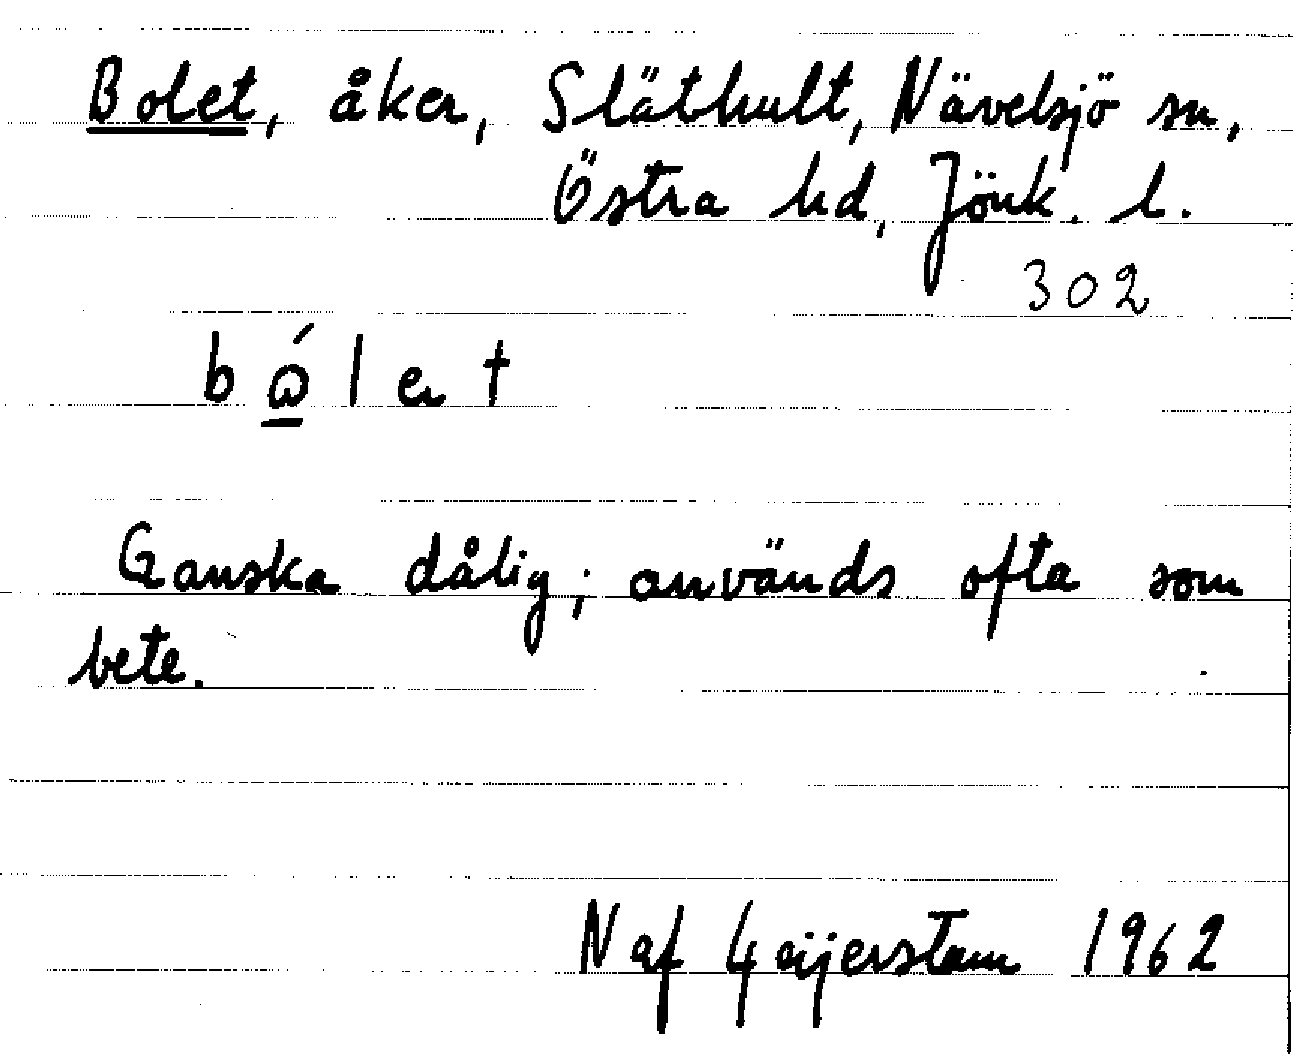 Bolet, åker, Släthult, Nävelsjö sn,
Östra hd, Jönk. l.
302
bώ̲let
Ganska dålig; används ofta som
bete.
N af Geijerstam 1962